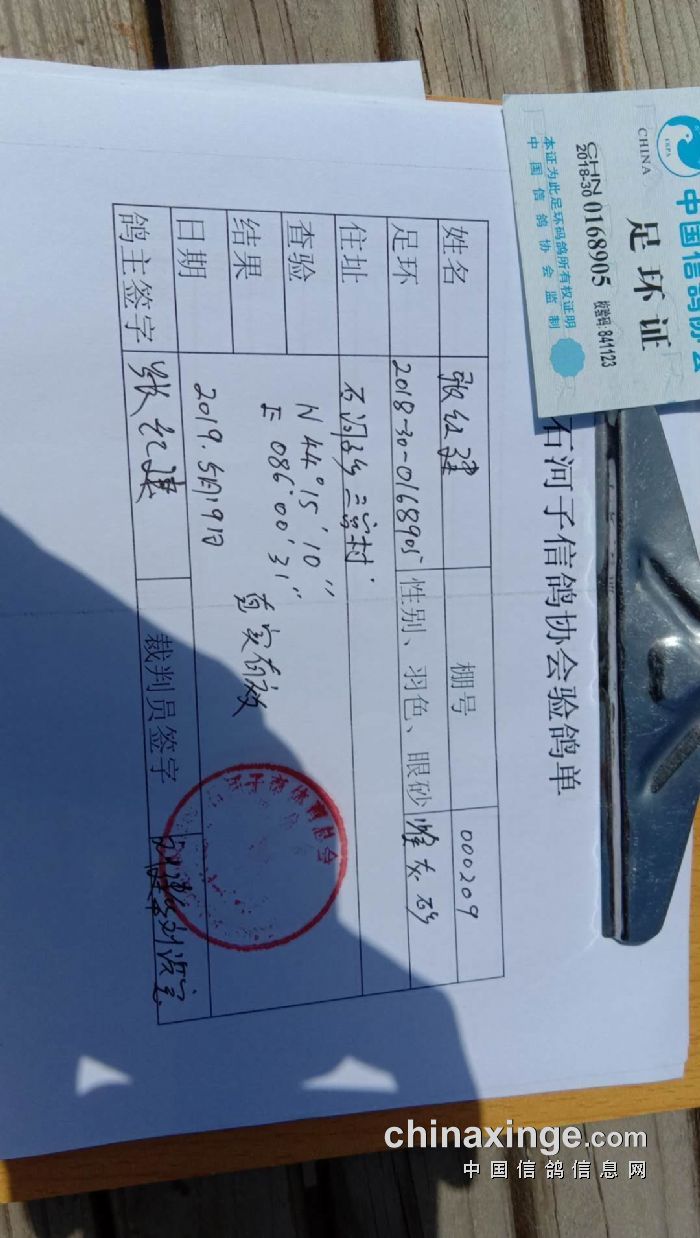 中国信鸽协会
CHINA
足环证
CHN
2018-30 0168905 校验码:841123
本证为此足环码鸽所有权证明
中国信鸽协会监制
石河子信鸽协会验鸽单
姓名 张红建 棚号 000209
足环 2018-30-0168905 性别、羽色、眼砂 雄灰砂
住址 石河乡三宫村
查验 N 44°15′10″
结果 E 086°00′31″
真实有效
日期 2019.5月19日
鸽主签字 张红建 裁判员签字
chinaxinge.com
中国信鸽信息网